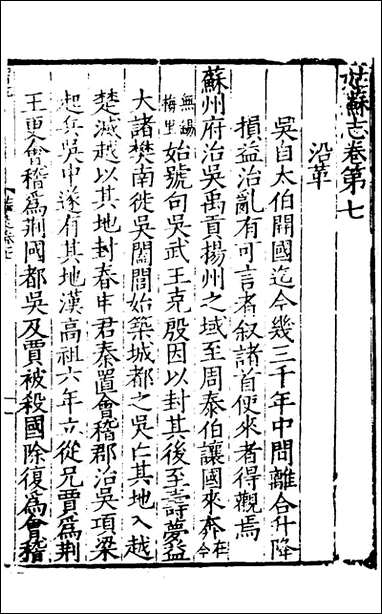 姑蘇志卷第七
沿革
吳自太伯開國迄今幾三千年中間離合升降
損益治亂有可言者叙諸首使來者得觀焉
蘇州府治吳禹貢揚州之域至周泰伯讓國來奔在今
無錫梅里始號句吳武王克殷因以封其後至壽夢益
大諸樊南徙吳闔閭始築城都之吳亡其地入越
楚滅越以其地封春申君秦置會稽郡治吳項梁
起兵吳中遂有其地漢高祖六年立從兄賈為荆
王更會稽爲荆國都吳及賈被殺國除復爲會稽